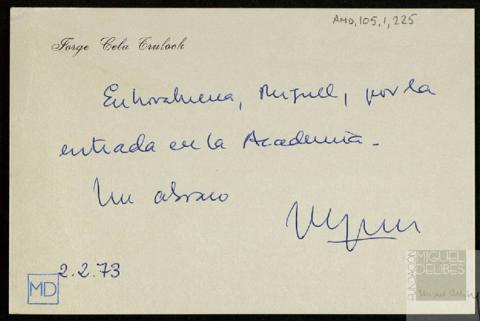 AMD,105,1,225
Jorge Cela Trulock
Enhorabuena, Miguel, por la
entrada en la Academia.
Un abrazo
2.2.73
MD
FUNDACIÓN
MIGUEL
DELIBES